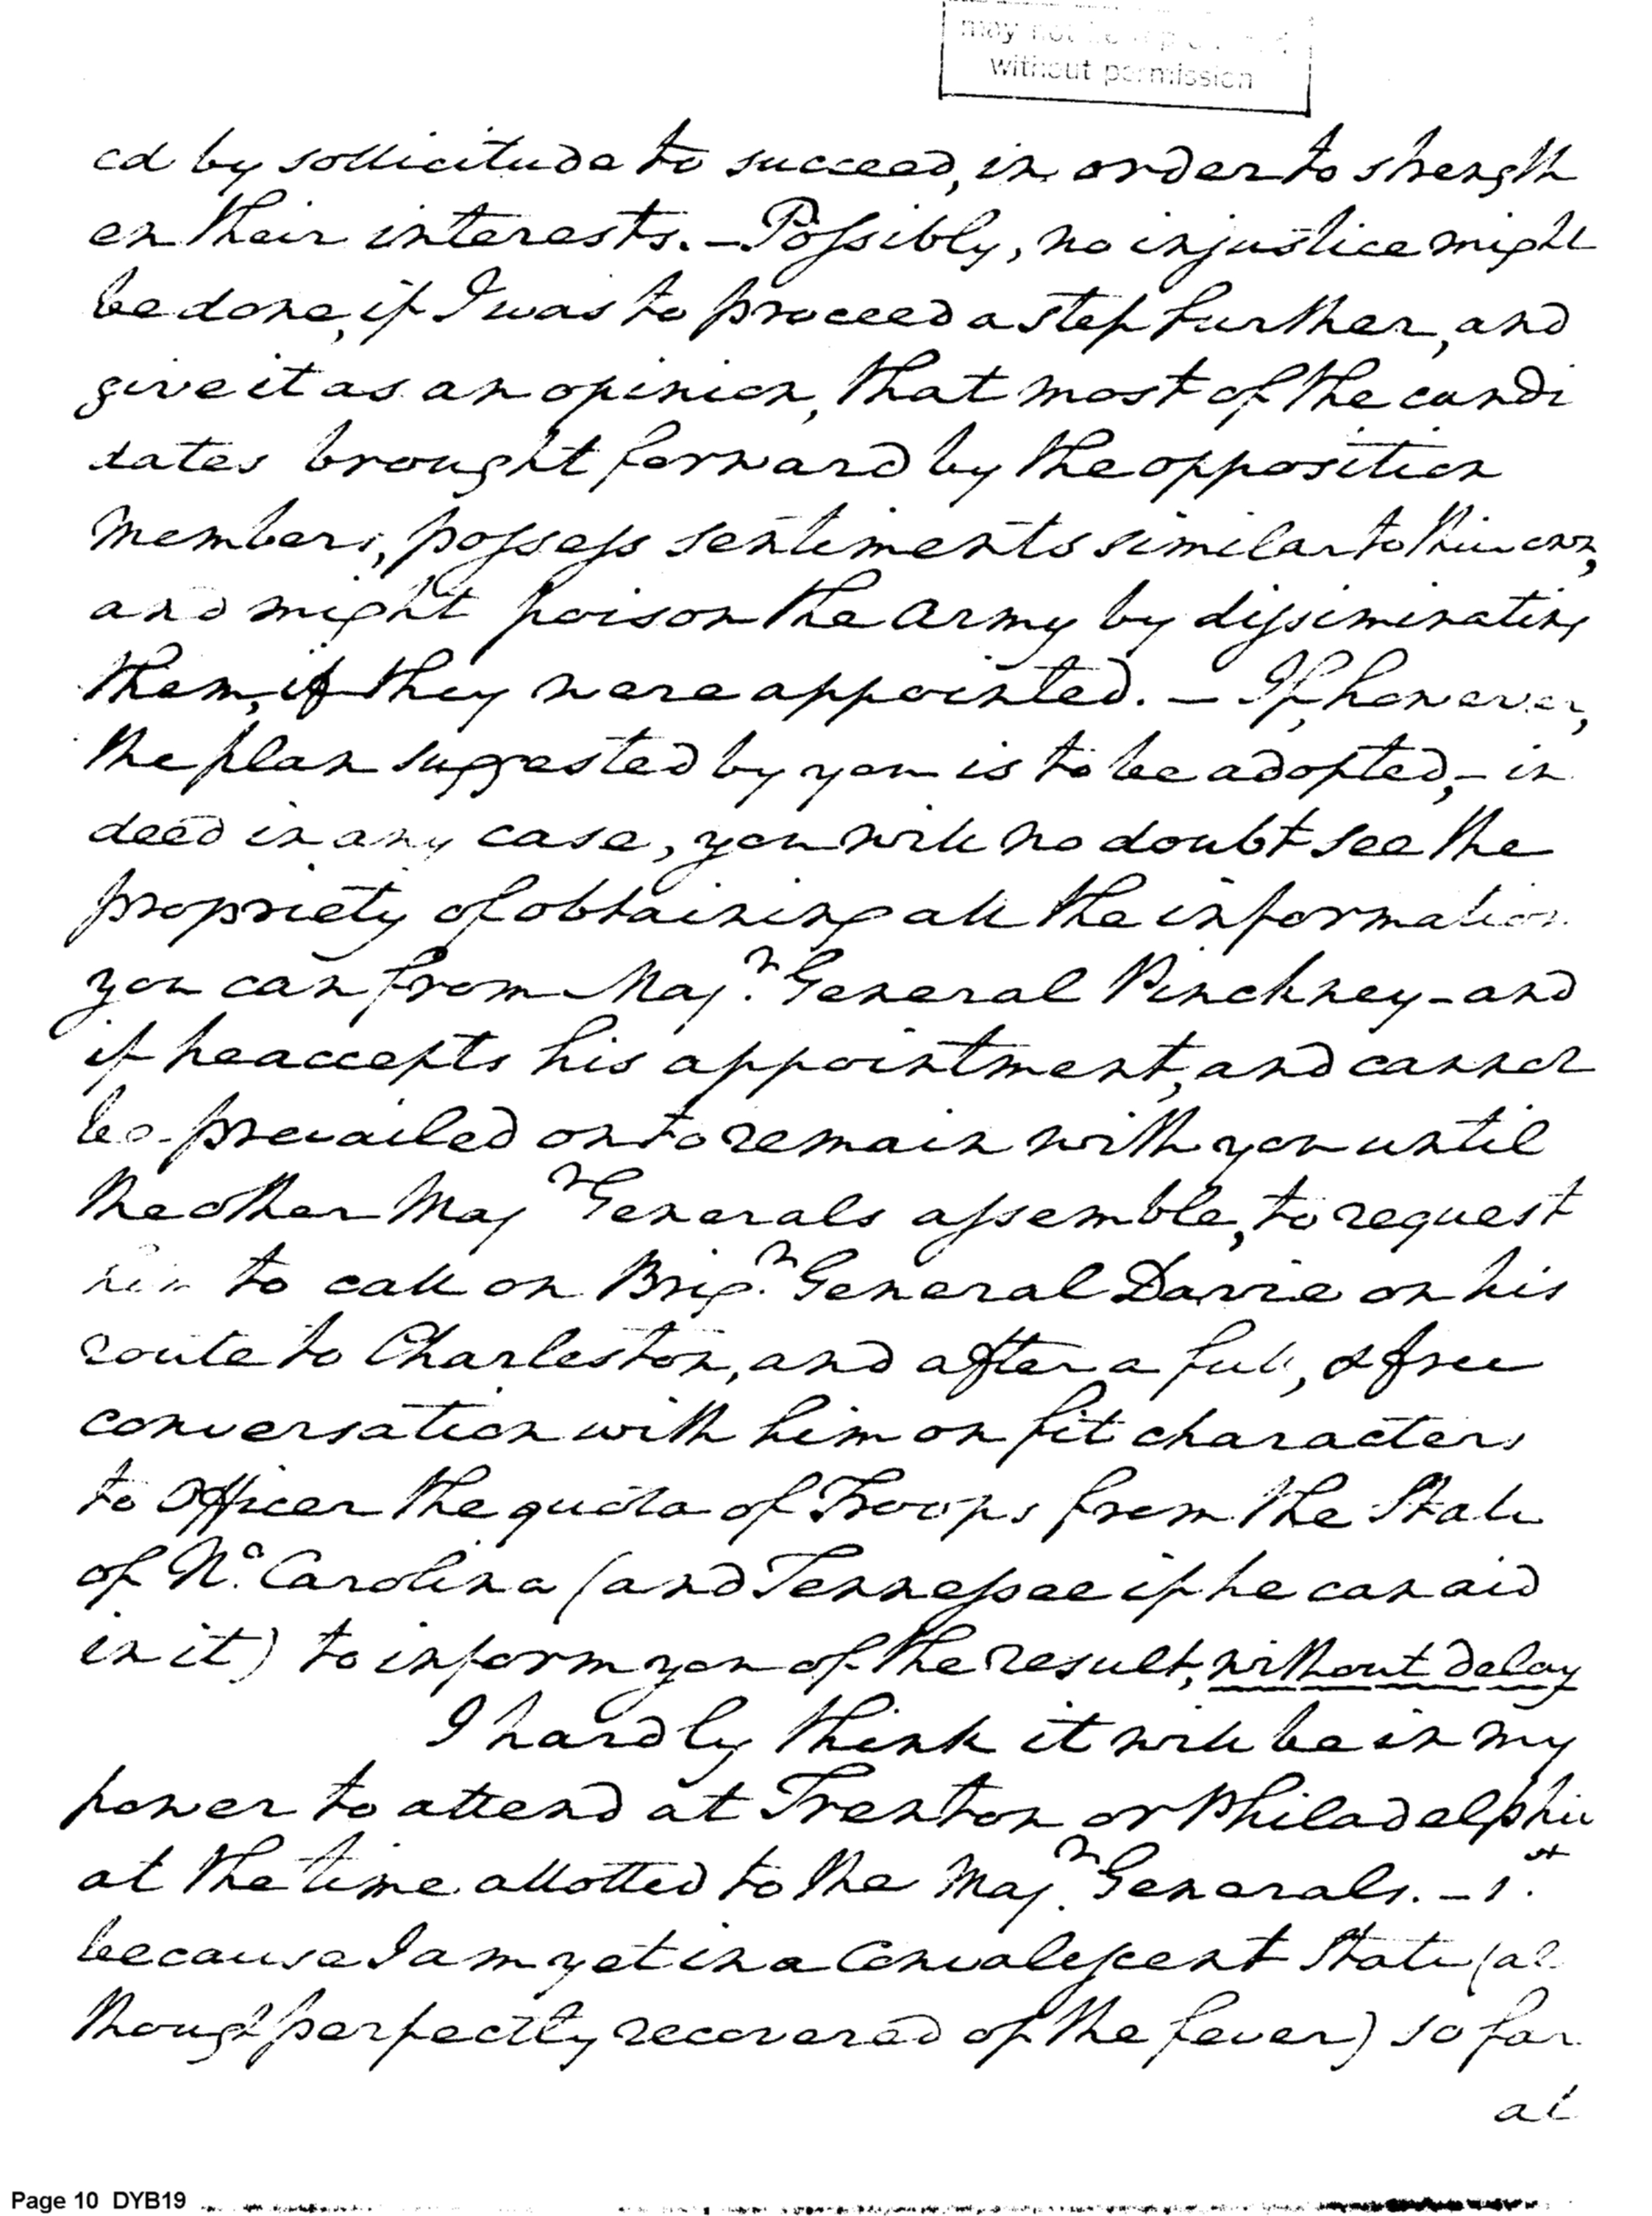 may not be rep
without permission
ed by sollicitude to succeed, in order to strength
en their interests. – Possibly, no injustice might
be done, if I was to proceed a step further, and
give it as an opinion, that most of the candi
dates brought forward by the opposition
members, possess sentiments similar to their own,
and might poison the army by dissiminating
them, if they were appointed. – If, however,
the plan suggested by you is to be adopted, – in
deed in any case, you will no doubt see the
propriety of obtaining all the information
you can from Maj.r General Pinckney – and
if he accepts his appointment, and cannot
be prevailed on to remain with you until
the other Maj r Generals assemble, to request
him to call on Brig.r General Davie on his
route to Charleston, and after a full, & free
conversation with him on fit characters
to Officer the quota of Troops from the State
of No. Carolina (and Tennessee if he can aid
in it) to inform you of the result, without delay
I hardly think it will be in my
power to attend at Trenton or Philadelphia
at the time allotted to the Maj.r Generals. – 1.st
because I am yet in a Convalescent State (al
though perfectly recovered of the fever) so far
at
Page 10 DYB19